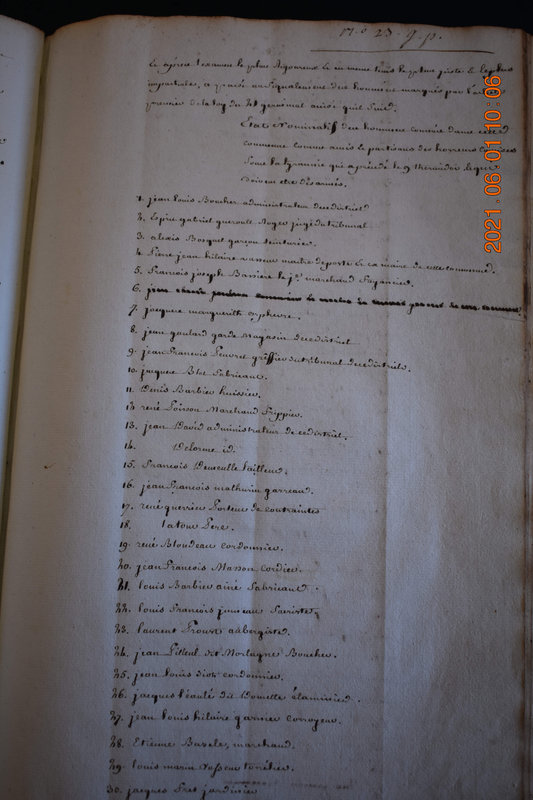 17.. 23. g. p.
et après l'examen le plus rigoureux et en meme tems le plus juste & le plus
impartiale, a procédé au signalement des hommes marqués par l'article
premier de la loy du 21 germinal ainsi quil suit.
Etat Nominatif des hommes connus dans cette
commune comme amis & partisans des horreurs commises
sous la tyrannie qui a précédé le 9 thermidor lesquels
doivent etre désarmés,
1. jean louis Boucher administrateur du district
2. Esprit gabriel queroult Roger juge du tribunal
3. alexis Bosquet garçon teinturier.
4. Pierre jean hilaire maitre de poste & ex maire de cette commune.
5. François joseph Barriere le jne marchand
6.
7. jacques margueritte orphevre.
8. jean goulard garde magasin de ce district
9. jean François greffier du tribunal de ce district.
10. jacques Blot fabricant.
11. Denis Barbier huissier.
12 rené Poisson Marchand frippier.
13. jean David administrateur de ce district.
14. Delorme id.
15. François tailleur.
16. jean François mathurin garreau.
17. rené guerrier Porteur de contraintes
18. latour Pere.
19. rené Blondeau cordonnier.
20. jean François Masson cordier.
21. louis Barbier ainé fabricant.
22. louis François juneau
23. laurent Prout aubergiste.
24. jean Pilleul dit Mortagne Boucher.
25. jean louis cordonnier.
26. jacques l'eauté dit
27. jean louis hilaire garnier corroyeur
28. Etienne Bazile, marchand.
29. louis marin Vasseur tonelier.
30. jacques jardinier
2021.06.01 10:06